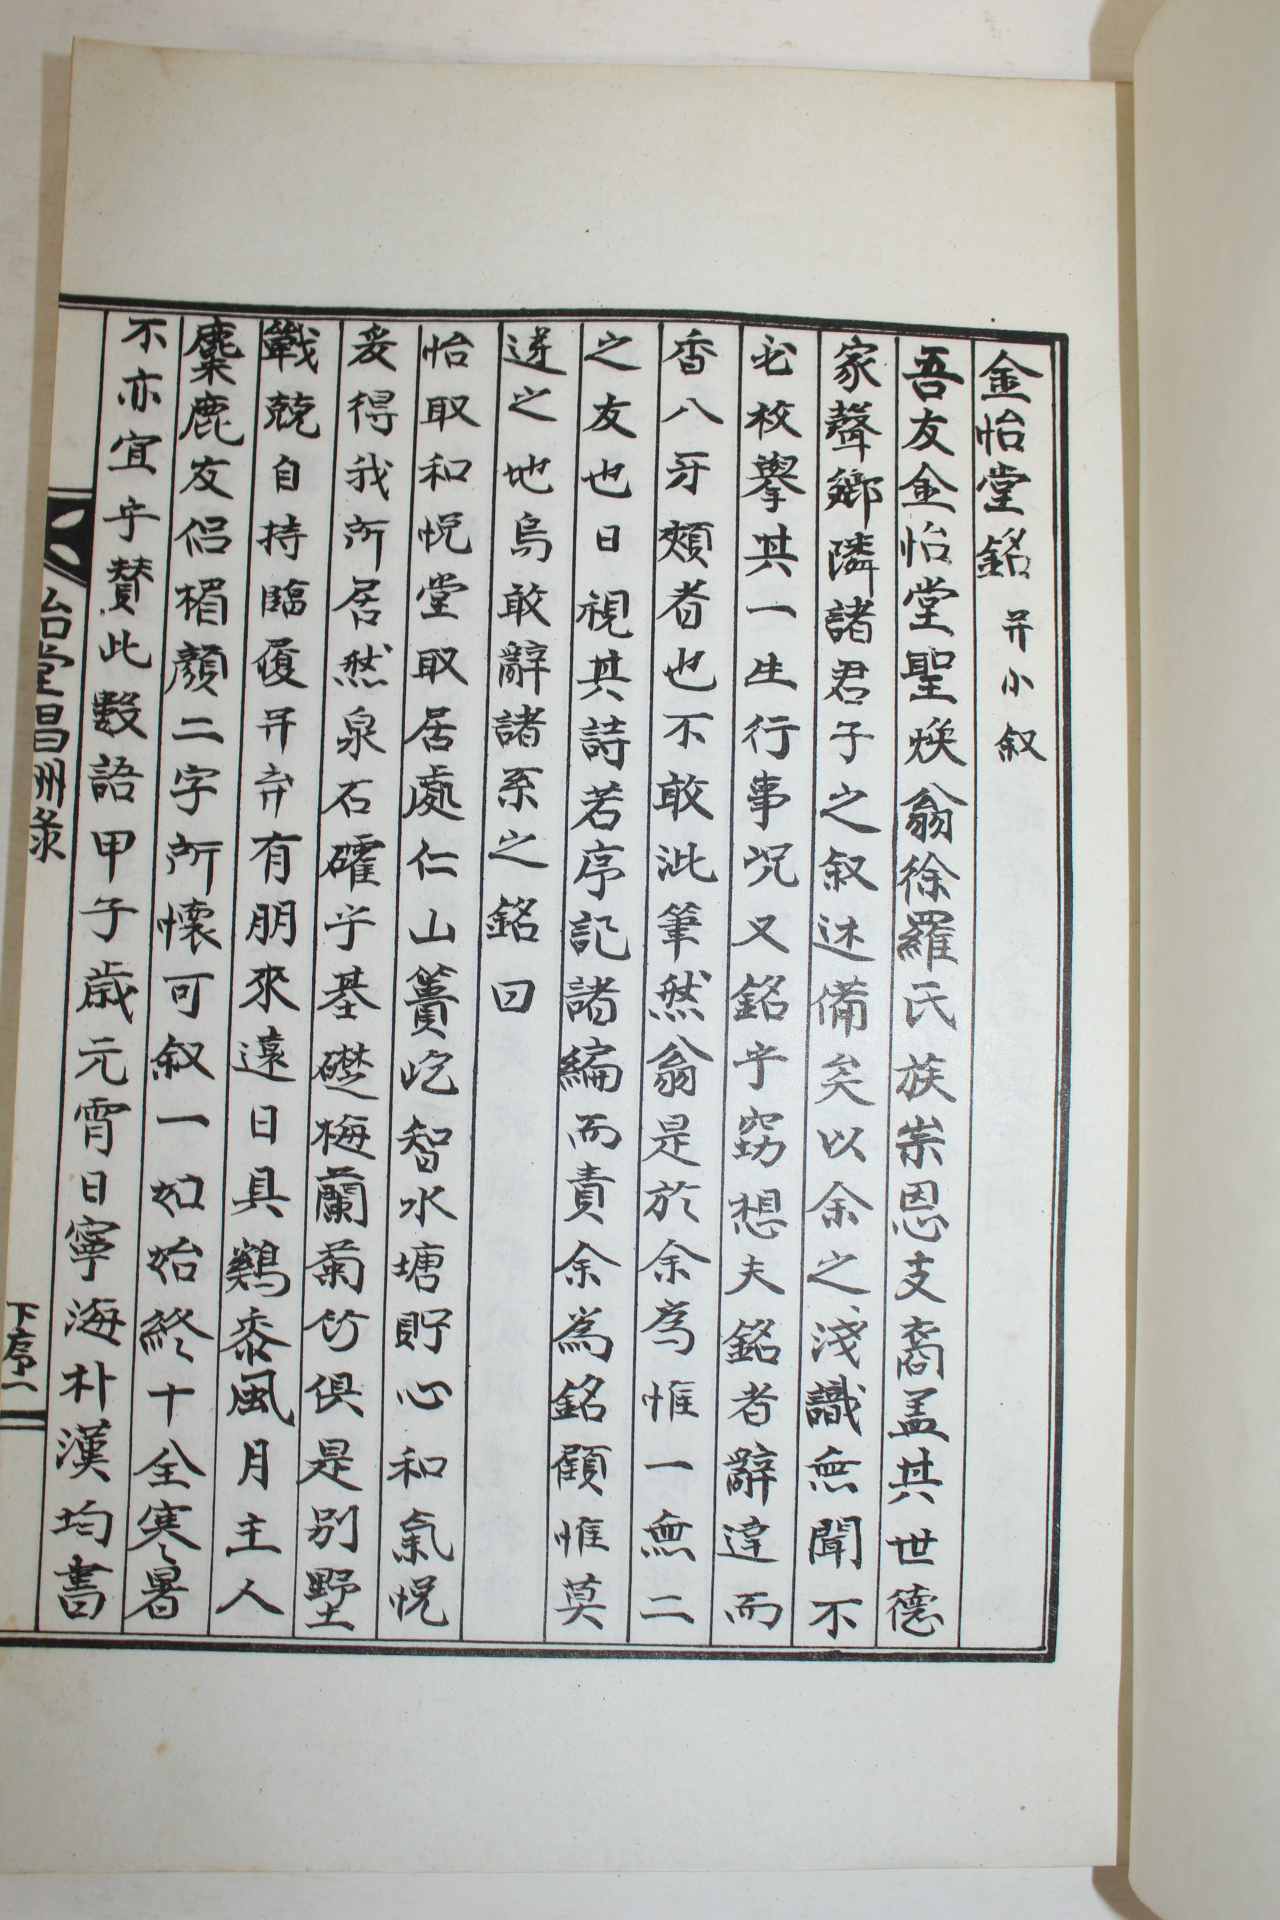 金怡堂銘 并小叙
吾友金怡堂聖煥翁徐羅氏族崇恩支裔盖其世德
家聲鄉隣諸君子之叙述備矣以余之淺識無聞不
必枚擧其一生行事况又銘乎窃想夫銘者辭違而
香八牙頰者也不敢泚筆然翁是於余爲惟一無二
之友也日視其詩若序記諸編而責余爲銘顧惟莫
逆之地烏敢辭諸系之銘曰
怡取和悅堂取居處仁山簣屹智水塘貯心和氣悅
爰得我所居然泉石確乎基礎梅蘭菊竹俱是別野
戰兢自持臨履并弃有朋來遠日具鷄黍風月主人
麋鹿友侶楣顏二字所懷可叙一如始終十全寒暑
不亦宜乎贊此數語甲子歲元霄日寧海朴漢均書
怡堂昌酬錄
下序一